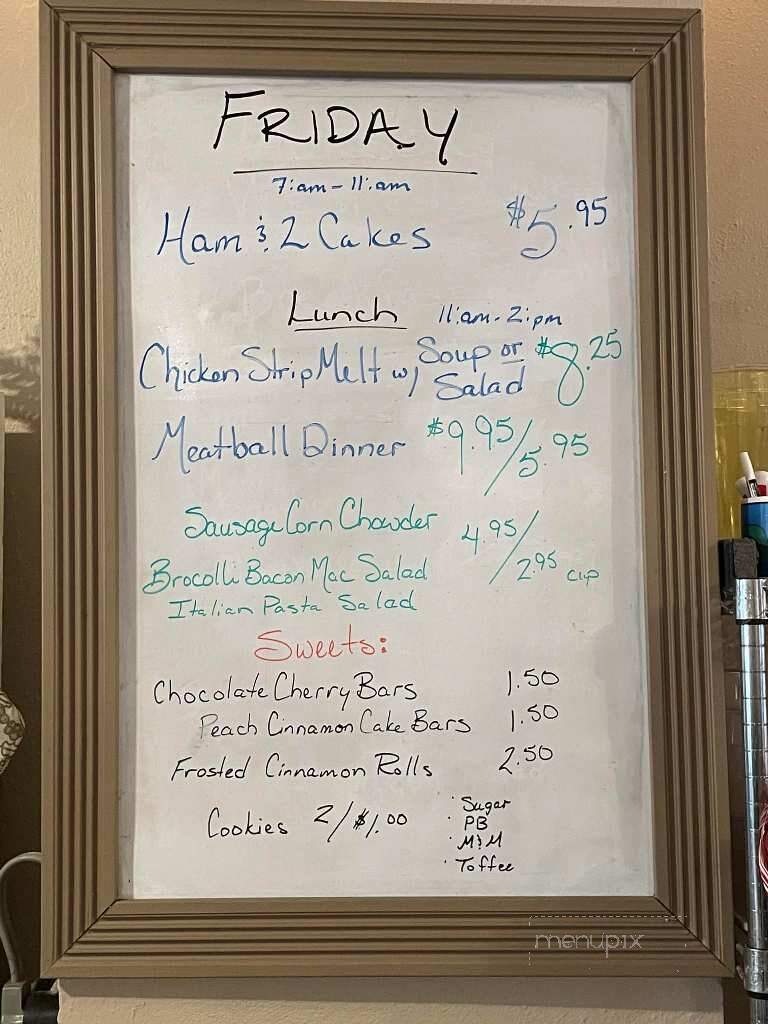 FRIDAY
7:am - 11:am
Ham & 2 Cakes $5.95
Lunch 11:am - 2:pm
Chicken Strip Melt w/ Soup or Salad $8.25
Meatball Dinner $9.95/5.95
Sausage Corn Chowder 4.95/2.95 cup
Brocolli Bacon Mac Salad
Italian Pasta Salad
Sweets:
Chocolate Cherry Bars 1.50
Peach Cinnamon Cake Bars 1.50
Frosted Cinnamon Rolls 2.50
Cookies 2/$1.00
· Sugar
· PB
· M&M
· Toffee
menupix